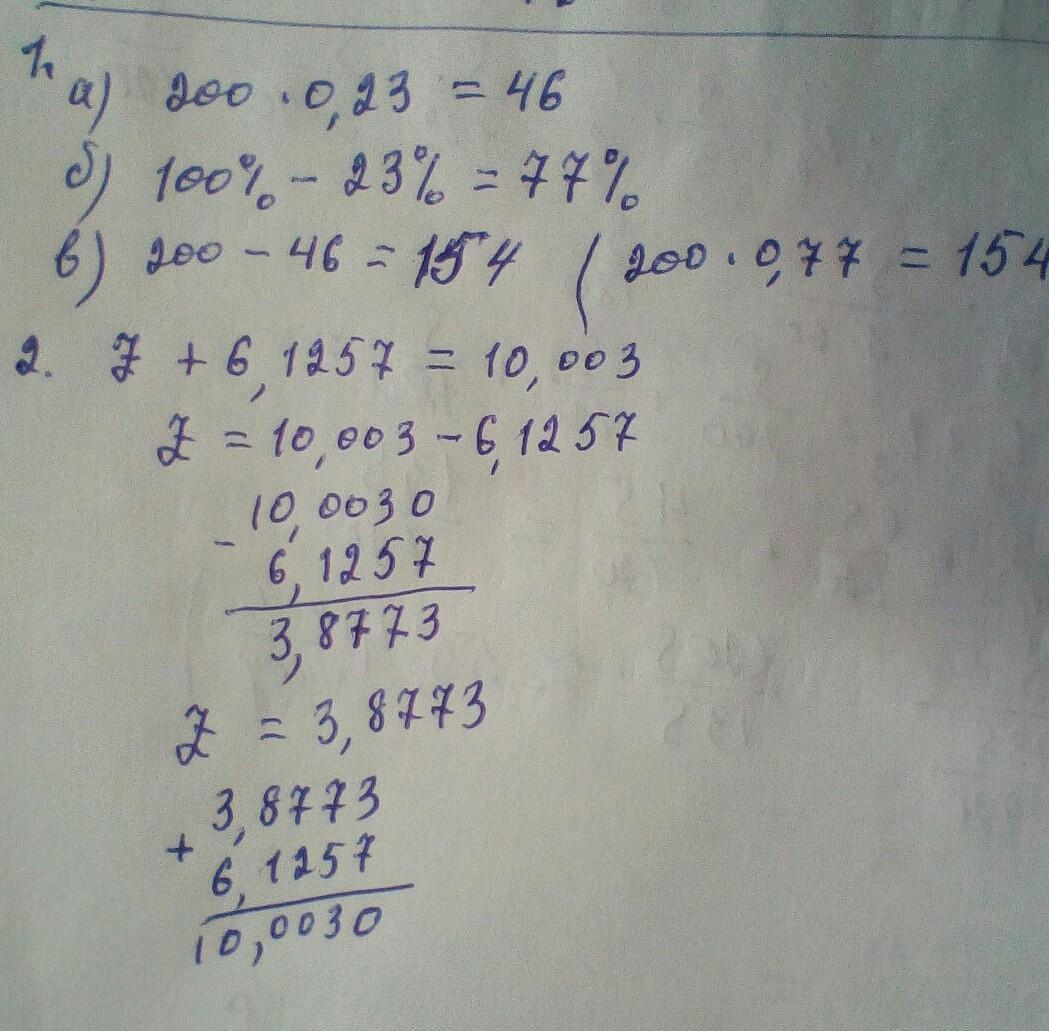 1.
а) 200 · 0,23 = 46
б) 100% - 23% = 77%
в) 200 - 46 = 154 ( 200 · 0,77 = 154
2. Z + 6,1257 = 10,003
Z = 10,003 - 6,1257
10,0030
-
6,1257
3,8773
Z = 3,8773
3,8773
+
6,1257
10,0030